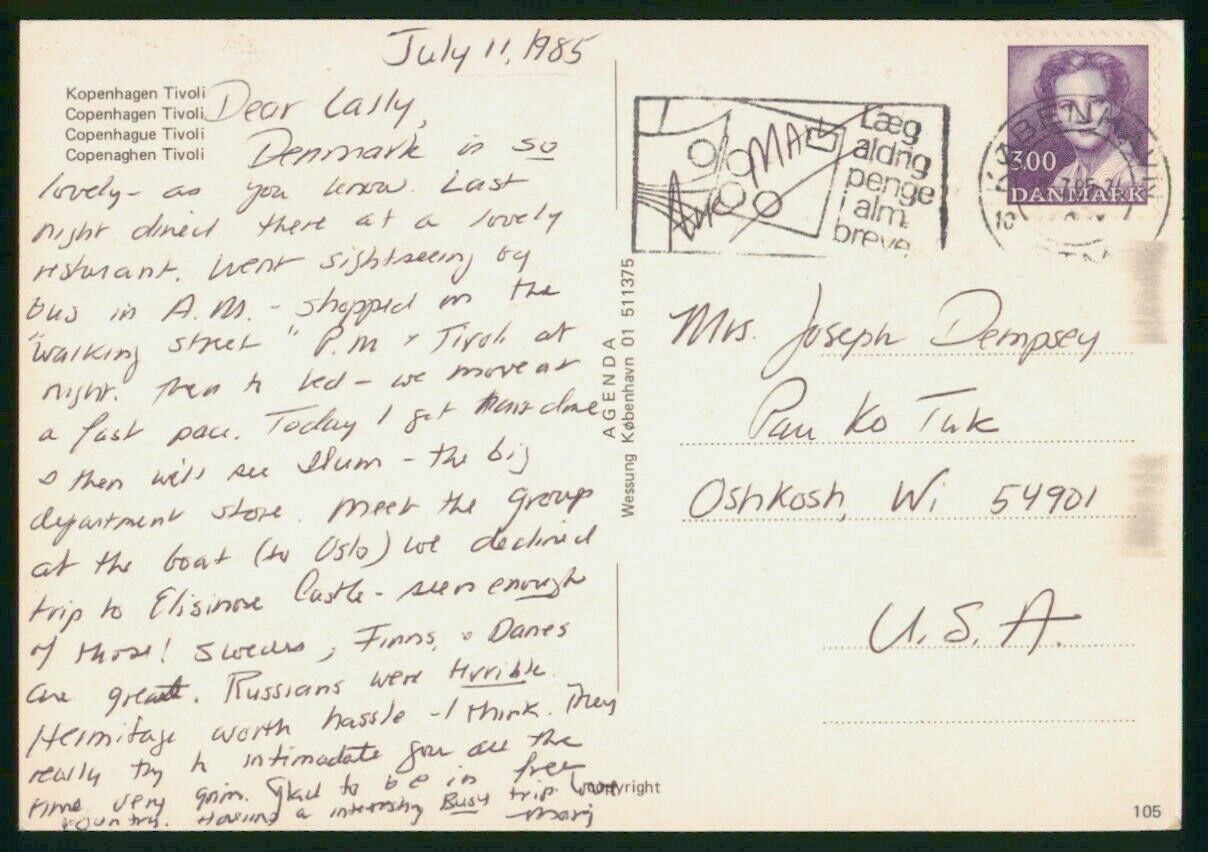 July 11, 1985
Kopenhagen Tivoli
Copenhagen Tivoli
Copenhague Tivoli
Copenaghen Tivoli
Dear Lally,
Denmark is so
lovely - as you know. Last
night dined there at a lovely
resturant. Went sightseeing by
bus in A.M. - shopped on the
"walking street" P.M + Tivoli at
night. Then to bed - we move at
a fast pace. Today I get hair done
& then will see Illum - the big
department store. Meet the group
at the boat (to Oslo) we declined
trip to Elisinose Castle - seen enough
of those! Swedes, Finns, & Danes
are great. Russians were Hrrible.
Hermitage worth hassle - I think. They
really try to intimadate you all the
time very grim. Glad to be in free
country. Having a interesting Busy trip. Love
Marj
AGENDA
Wessung København 01 511375
Copyright
Læg
aldrig
penge
i alm.
breve
Air MAIL
KØBENHAVN
3.00
DANMARK
Mrs. Joseph Dempsey
Pau Ko Tuk
Oshkosh, Wi 54901
U.S.A.
105